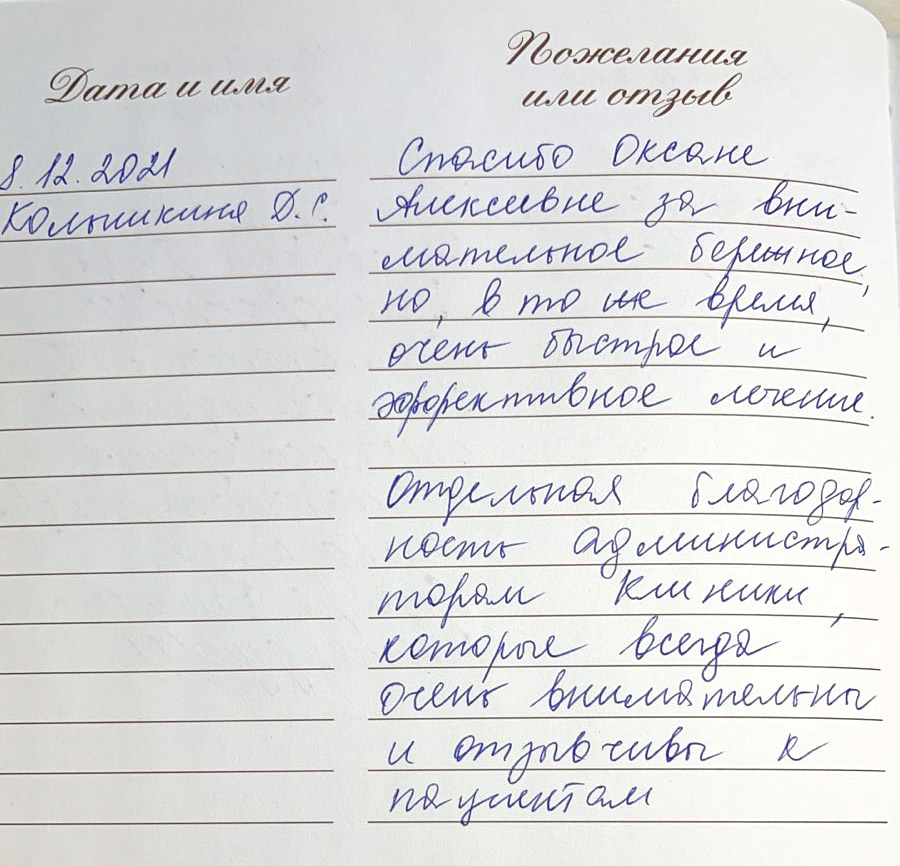 Дата и имя
Пожелания
или отзыв
8.12.2021
Колышкина Д.С.
Спасибо Оксане
Алексевне за вни-
мательное бережное,
но, в то же время,
очень быстрое и
эффективное лечение.
Отдельная благодар-
ность администра-
торам клиники,
которые всегда
очень внимательны
и отзывчивы к
пациентам